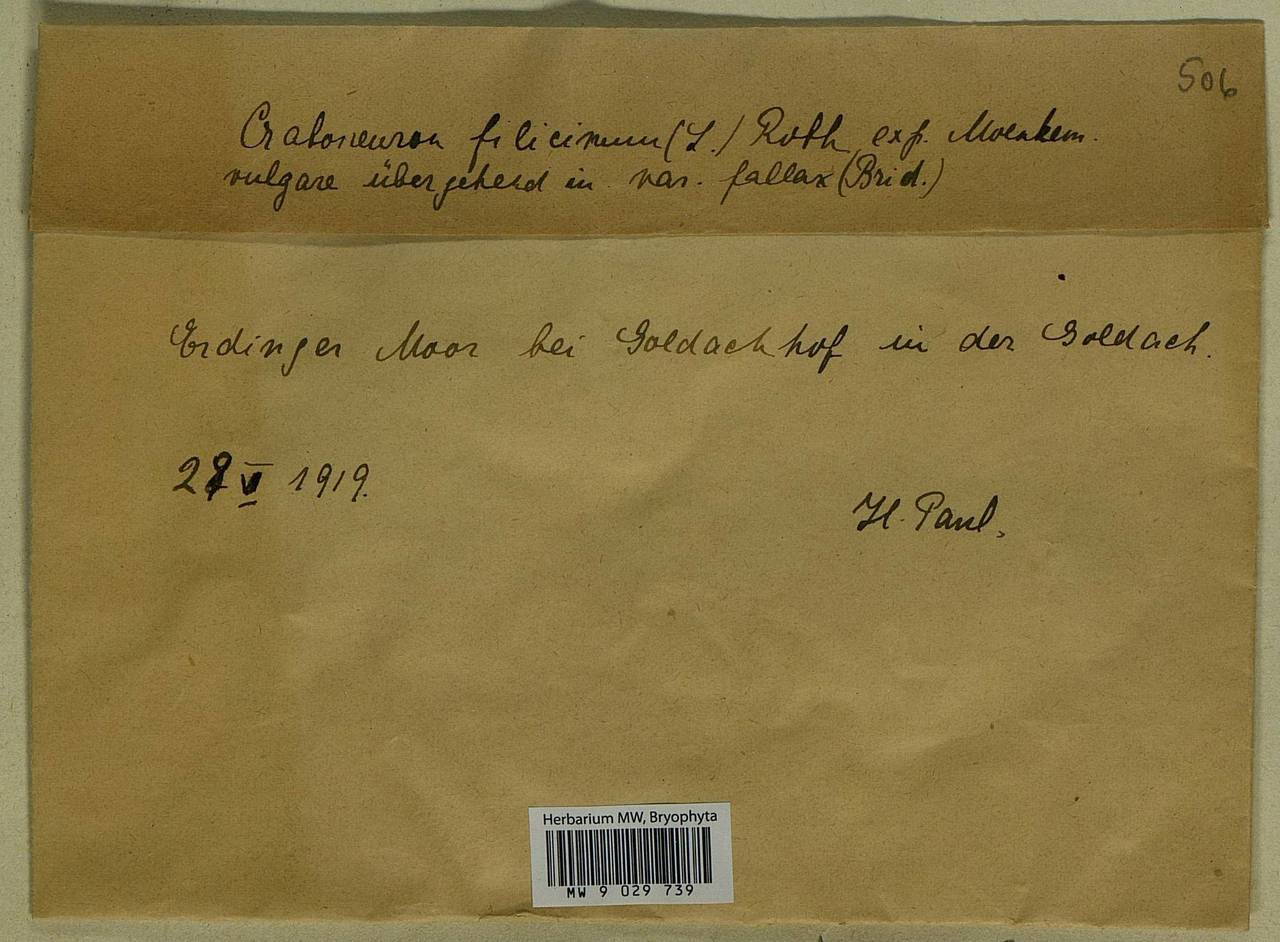 506
Cratoneuron filicinum (L.) Roth exp. Moenkem.
vulgare übergehend in var. fallax (Brid.)
Erdinger Moor bei Goldachhof in der Goldach.
V 1919.
H. Paul.
Herbarium MW, Bryophyta
MW 9 029 739